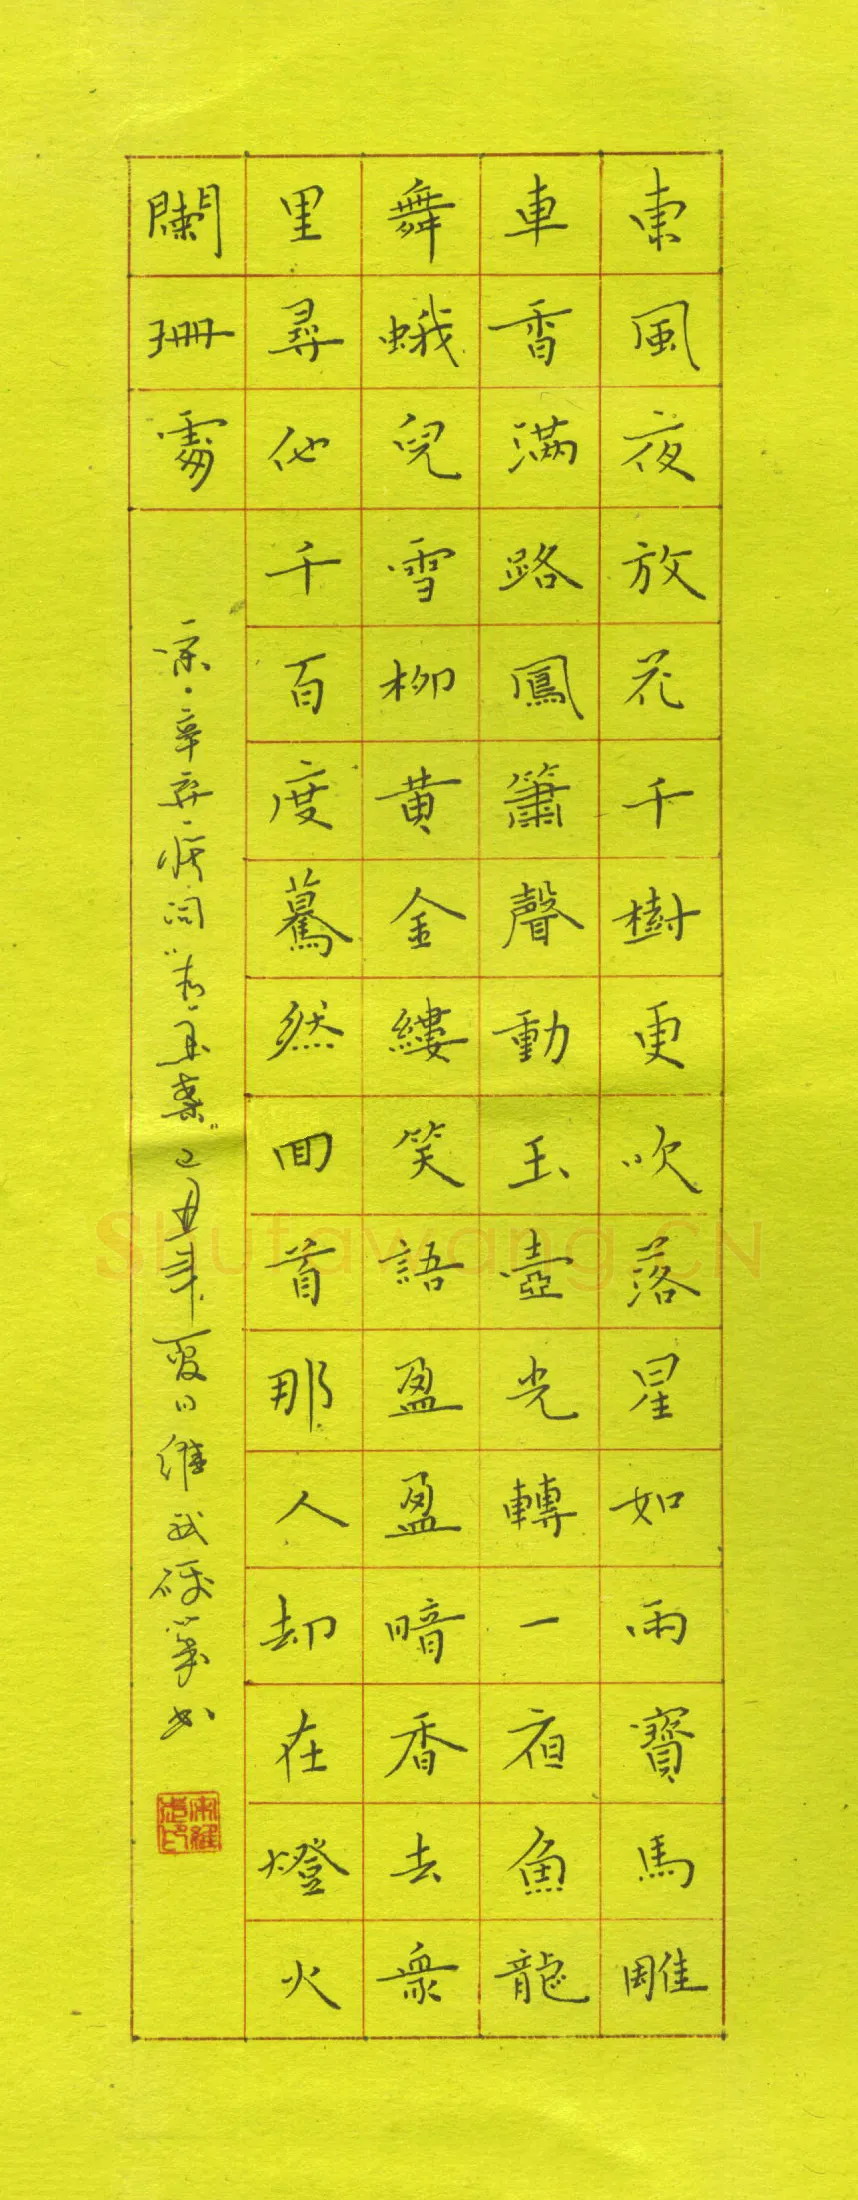 東風夜放花千樹更吹落星如雨寶馬雕
車香滿路鳳簫聲動玉壺光轉一夜魚龍
舞蛾兒雪柳黄金縷笑語盈盈暗香去衆
里尋他千百度驀然回首那人却在燈火
闌珊處
宋·辛弃疾词“青玉案”己丑年夏日維武硬筆书
Shufawang.CN